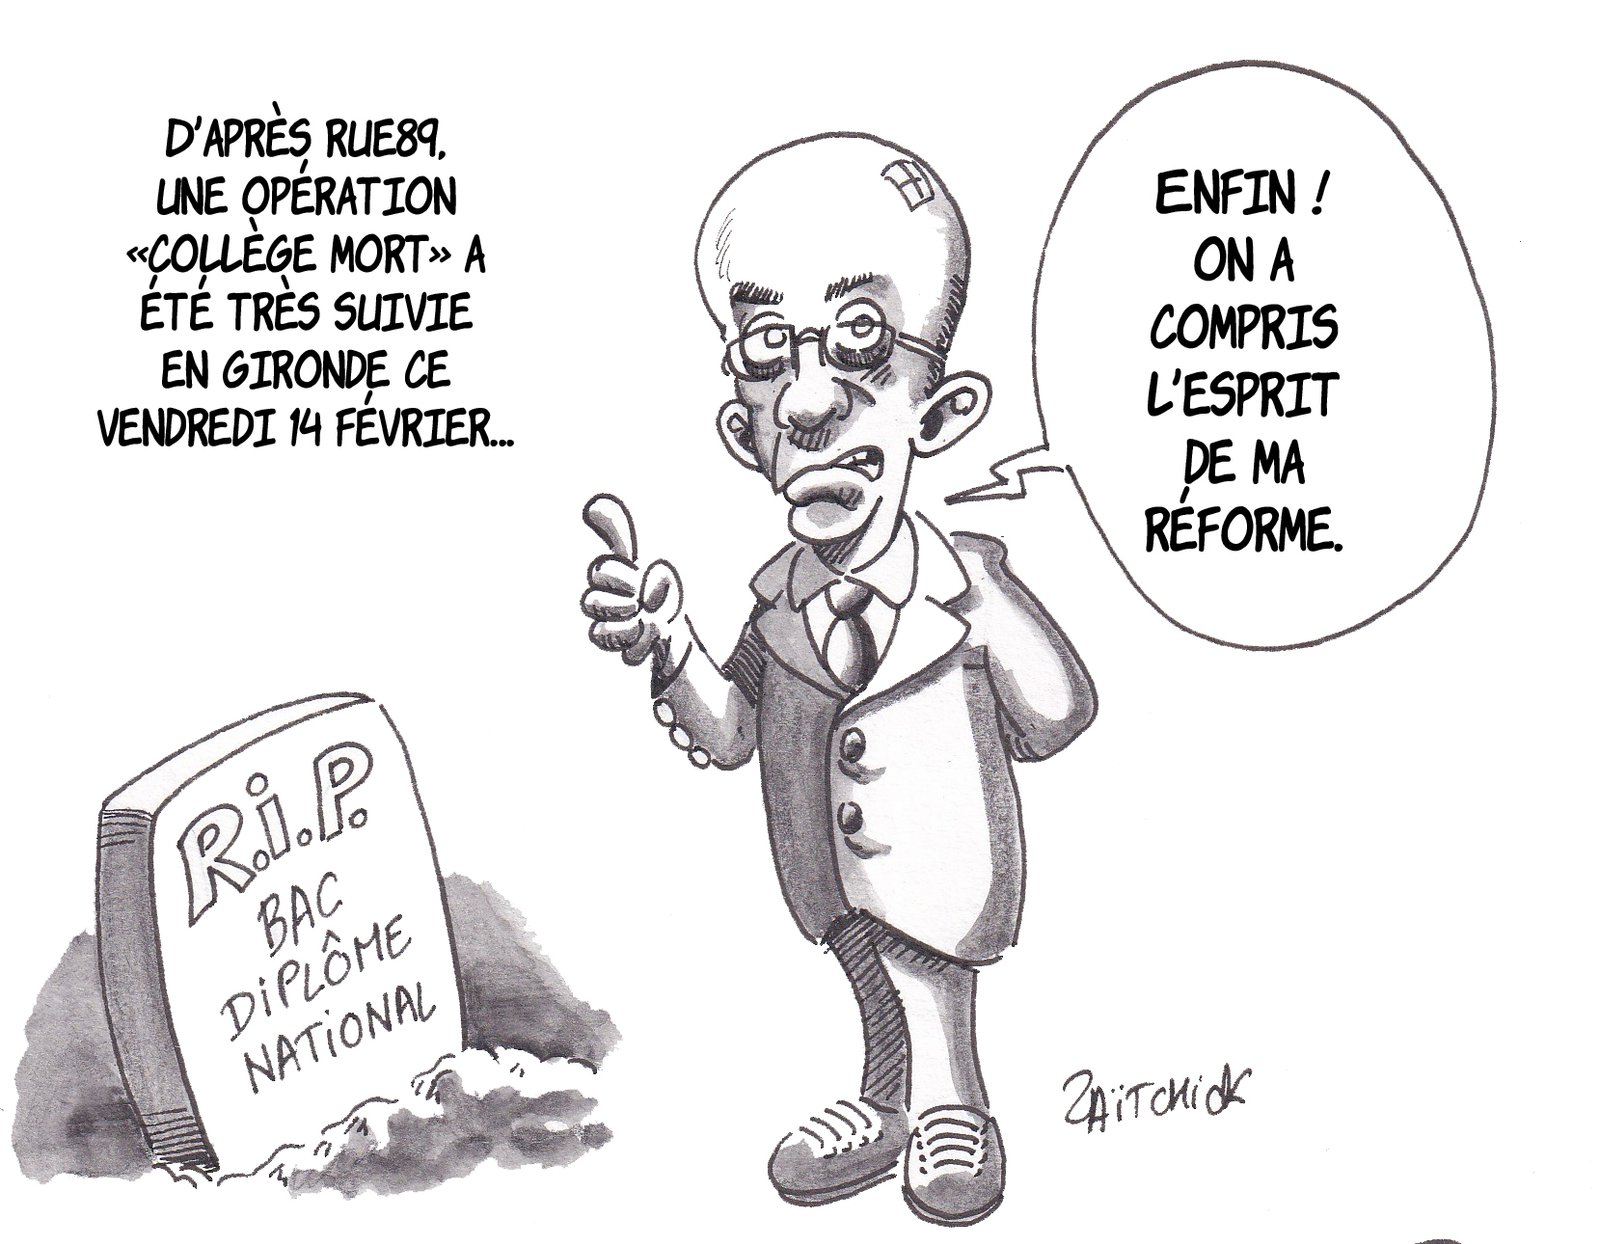 D'APRÈS RUE89,
UNE OPÉRATION
«COLLÈGE MORT» A
ÉTÉ TRÈS SUIVIE
EN GIRONDE CE
VENDREDI 14 FÉVRIER...
ENFIN !
ON A
COMPRIS
L'ESPRIT
DE MA
RÉFORME.
R.i.P.
BAC
DiPLÔME
NATiONAL
ZAÏTCHiCK